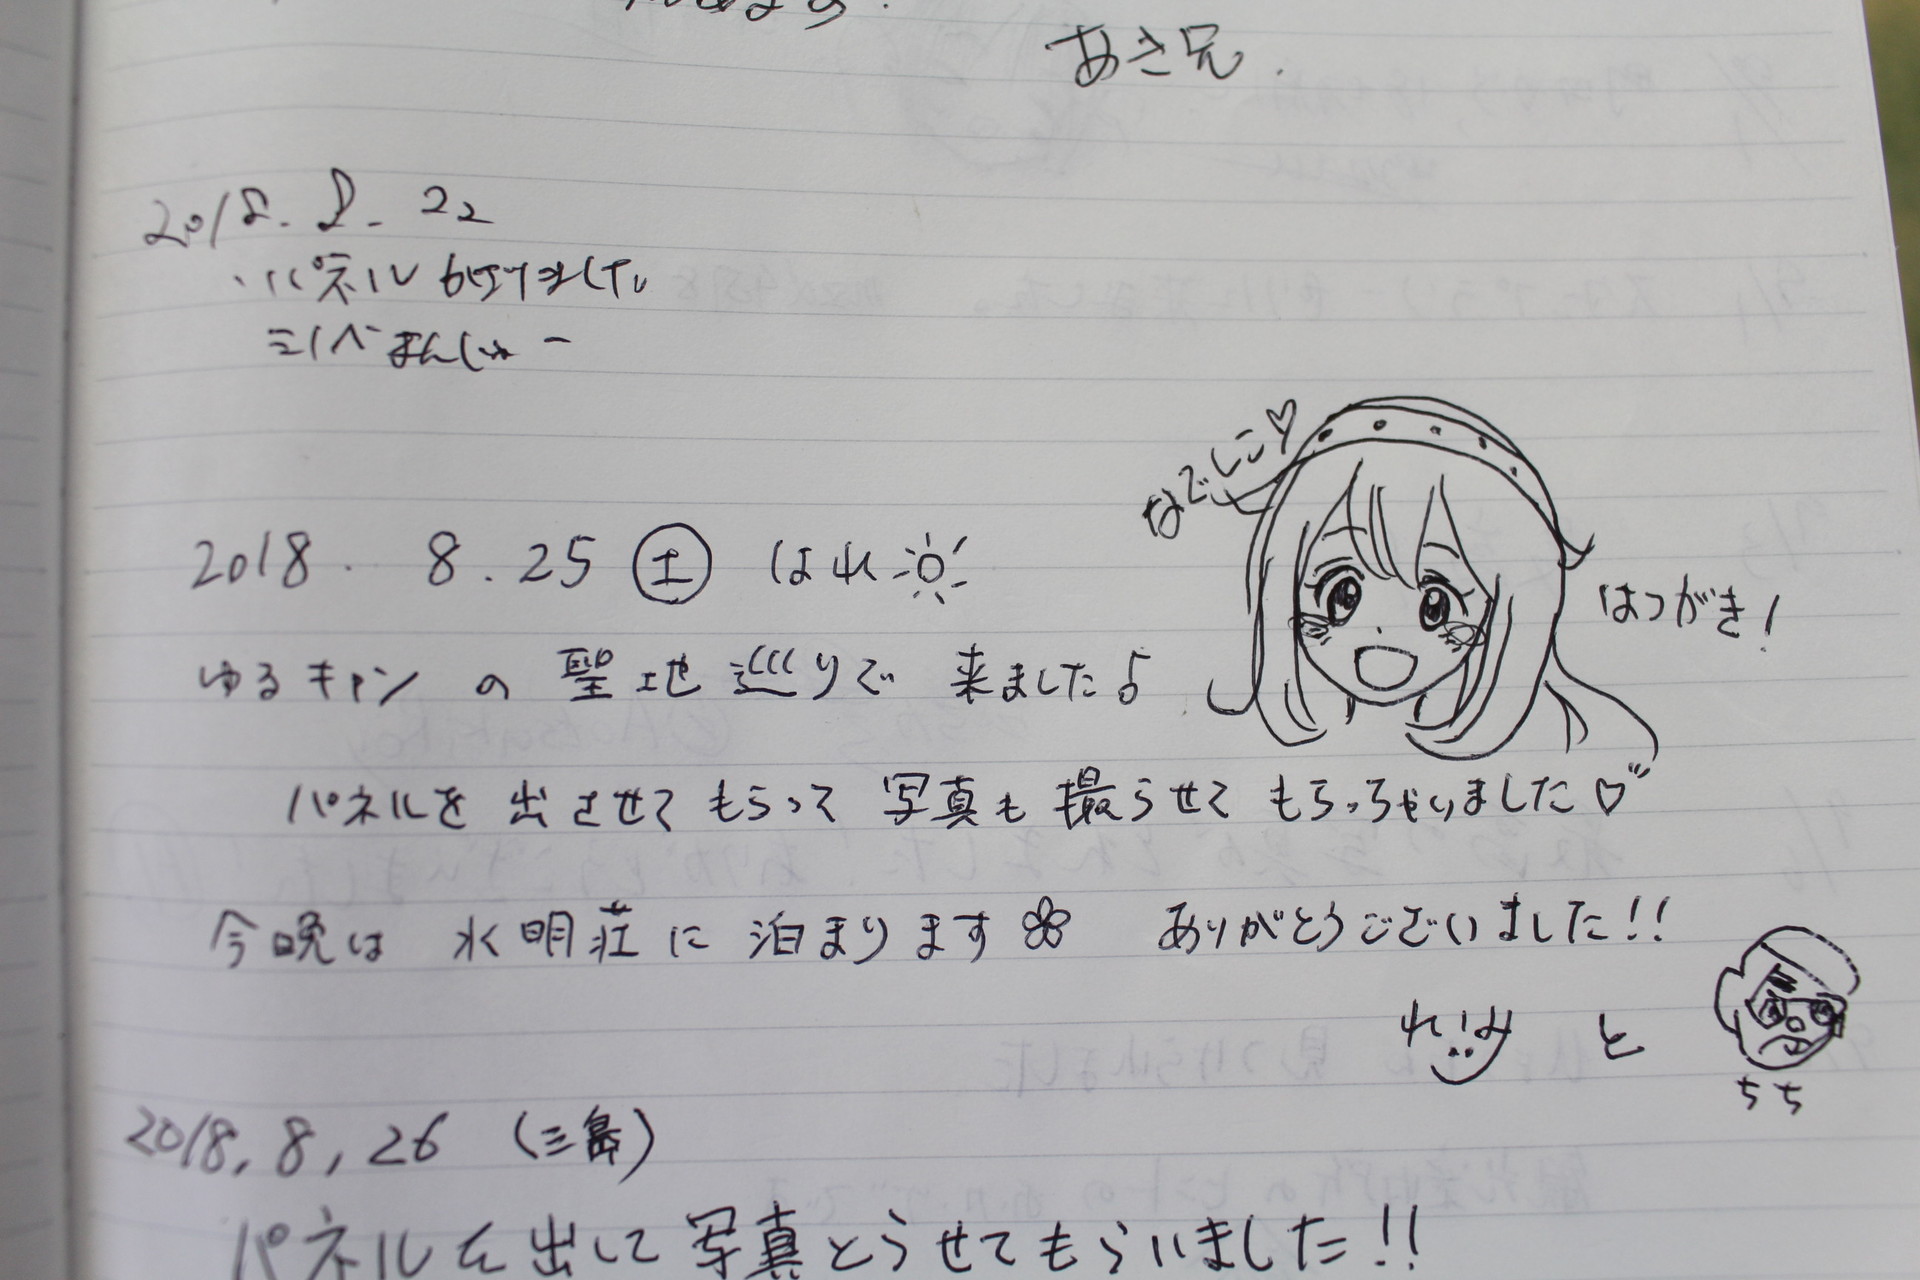 あき兄.
2018. 8. 22
パネル かりました。
ミノベまんじゅー
なでしこ♡
2018. 8.25 ㊏ はれ☀
はつがき!
ゆるキャン の 聖地巡りで 来ました♪
パネルを 出させて もらって 写真も 撮らせて もらっちゃいました♡
今晩は 水明荘に 泊まります ありがとうございました!!
れいみ と
ちち
2018, 8, 26 (三島)
パネルを出して写真とらせてもらいました!!